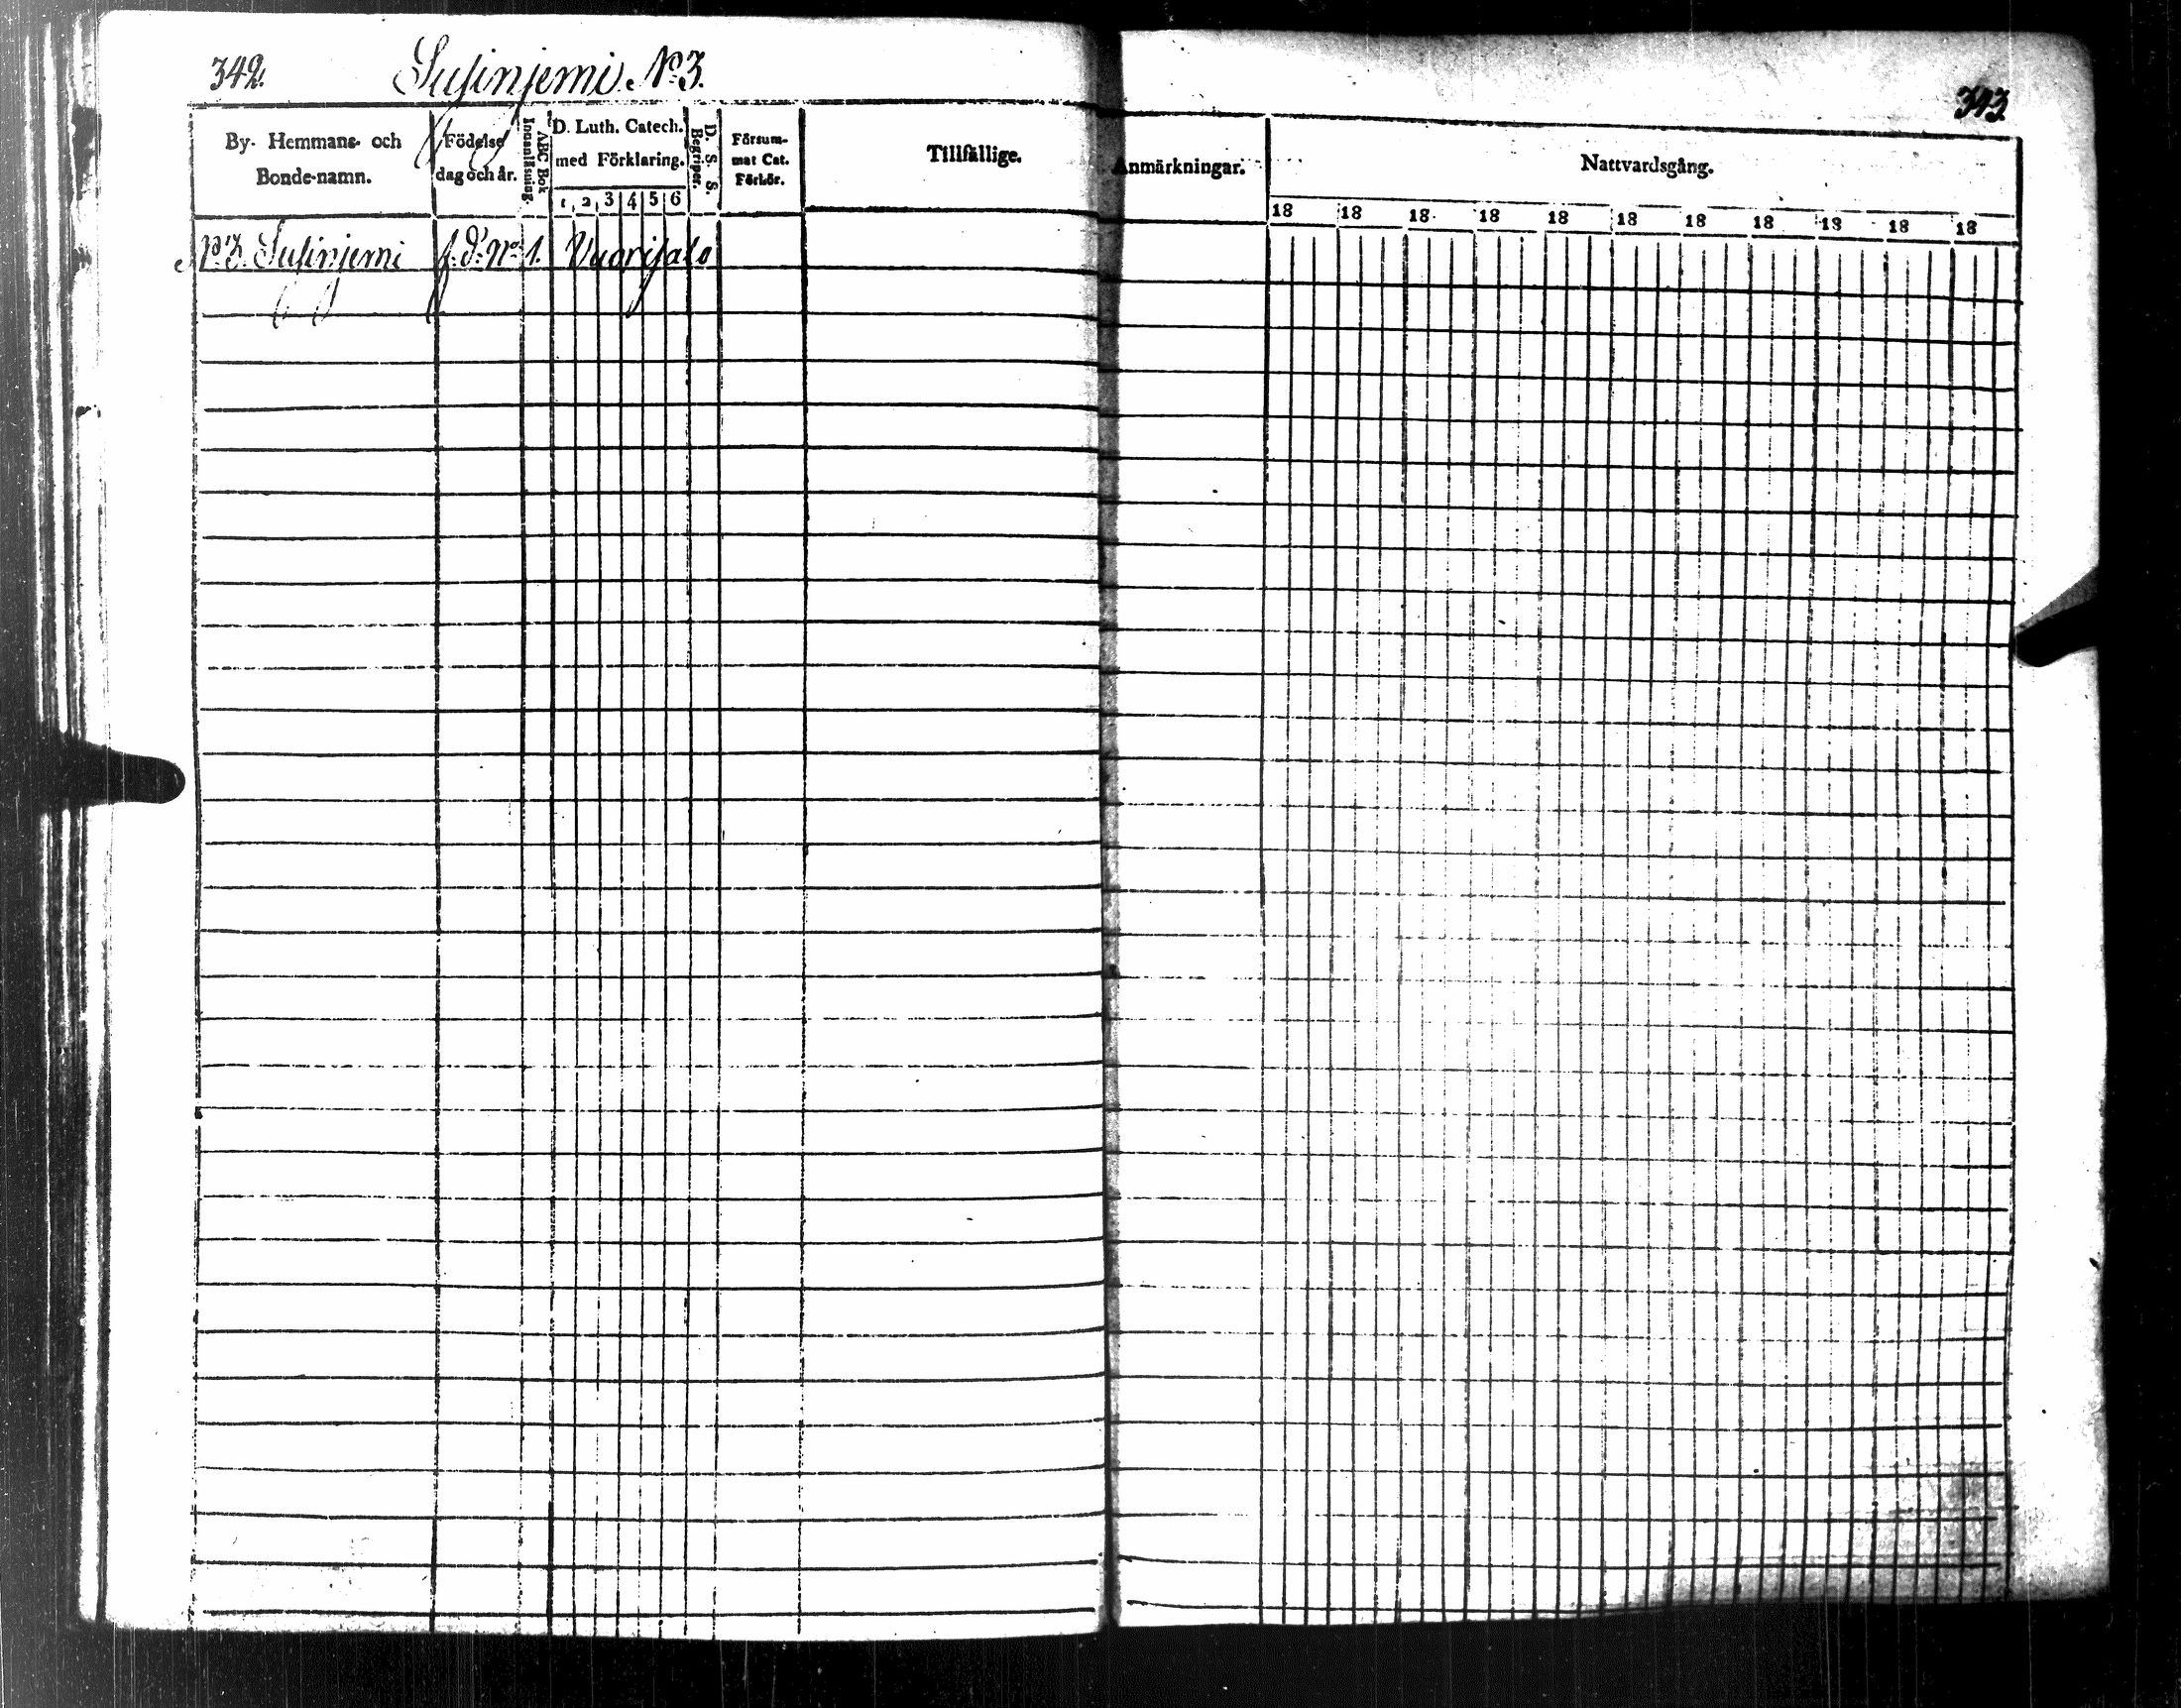 342. Susinjemi. N:o 3.
343
By- Hemmans- och Bonde-namn.
Födelse dag och år.
ABC Bok Innanläsning.
D. Luth. Catech. med Förklaring.
1 2 3 4 5 6
D. S. S. Begriper.
Försum- mat Cat. Förhör.
Tillfällige. Anmärkningar.
Nattvardsgång.
18 18 18 18 18 18 18 18 18 18 18
N:o 3. Susinjemi f. d. N:o 1. Vuorisalo